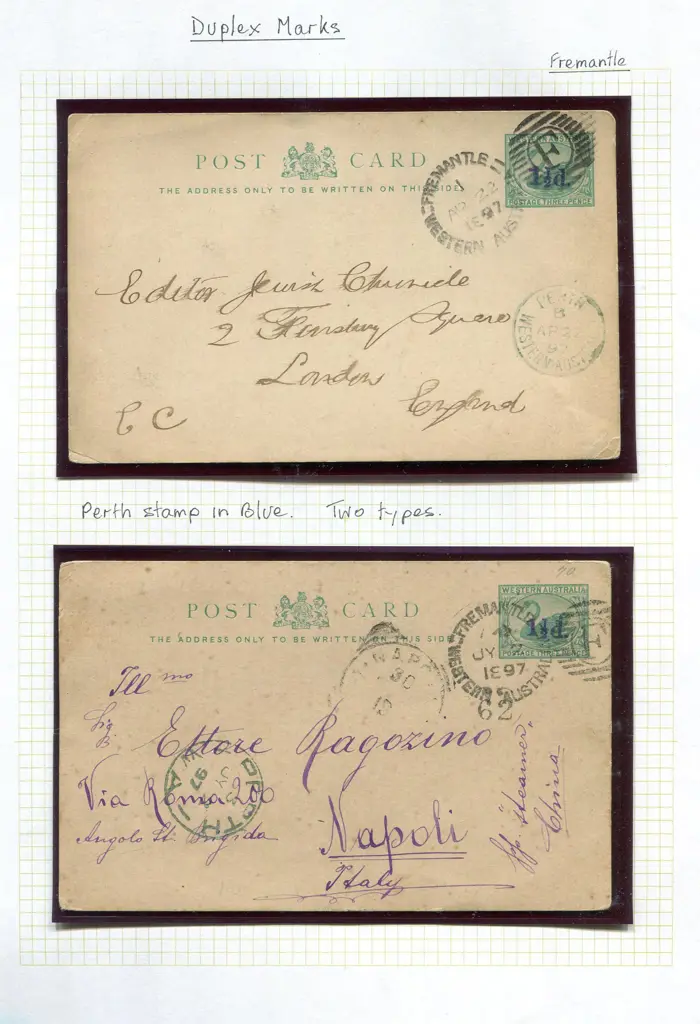 Duplex Marks
Fremantle
POST CARD
THE ADDRESS ONLY TO BE WRITTEN ON THIS SIDE
FREMANTLE
1
AP 22
1E97
WESTERN AUST
F
1½d.
POSTAGE THREE PENCE
Editor Jewish Chronicle
2 Finsbury Square
London
England
PERTH
B
AP 22
97
WESTERN AUST
Perth stamp in Blue. Two types.
POST CARD
THE ADDRESS ONLY TO BE WRITTEN ON THIS SIDE
WESTERN AUSTRALIA
1½d.
POSTAGE THREE PENCE
FREMANTLE
JY
1E97
WESTERN AUSTRALIA
62
NAPO
30
Ill mo
Sig
Ettore Ragozino
Via Roma 200
Angolo St. Brigida
Napoli
Italy
pp. "steamer"
China
PERTH W A
97